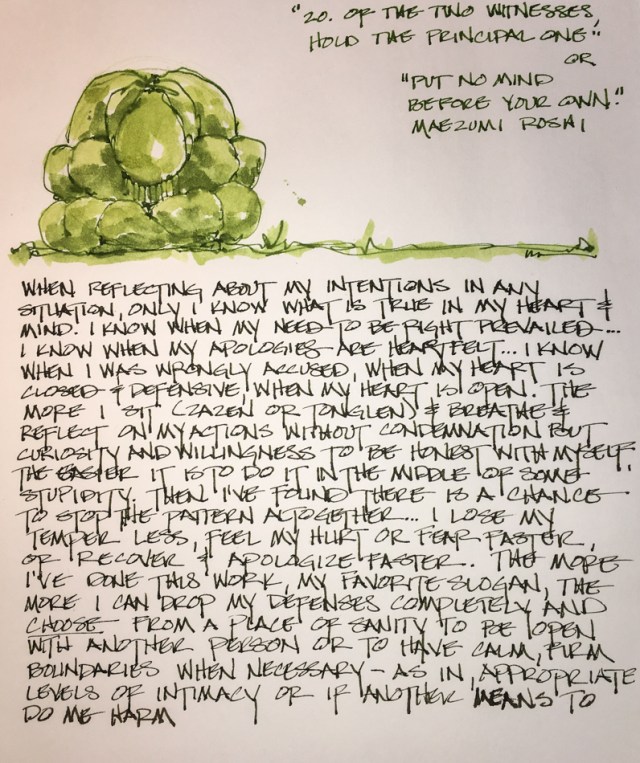 "20. OF THE TWO WITNESSES,
HOLD THE PRINCIPAL ONE"
OR
"PUT NO MIND
BEFORE YOUR OWN."
MAEZUMI ROSHI
WHEN REFLECTING ABOUT MY INTENTIONS IN ANY
SITUATION, ONLY I KNOW WHAT IS TRUE IN MY HEART &
MIND. I KNOW WHEN MY NEED TO BE RIGHT PREVAILED...
I KNOW WHEN MY APOLOGIES ARE HEARTFELT... I KNOW
WHEN I WAS WRONGLY ACCUSED, WHEN MY HEART IS
CLOSED & DEFENSIVE, WHEN MY HEART IS OPEN. THE
MORE I SIT (ZAZEN OR TONGLEN) & BREATHE &
REFLECT ON MY ACTIONS WITHOUT CONDEMNATION BUT
CURIOSITY AND WILLINGNESS TO BE HONEST WITH MYSELF,
THE EASIER IT IS TO DO IT IN THE MIDDLE OF SOME
STUPIDITY. THEN I'VE FOUND THERE IS A CHANCE
TO STOP THE PATTERN ALTOGETHER... I LOSE MY
TEMPER LESS, FEEL MY HURT OR FEAR FASTER,
OR RECOVER & APOLOGIZE FASTER.. THE MORE
I'VE DONE THIS WORK, MY FAVORITE SLOGAN, THE
MORE I CAN DROP MY DEFENSES COMPLETELY AND
CHOOSE FROM A PLACE OF SANITY TO BE OPEN
WITH ANOTHER PERSON OR TO HAVE CALM, FIRM
BOUNDARIES WHEN NECESSARY - AS IN, APPROPRIATE
LEVELS OF INTIMACY OR IF ANOTHER MEANS TO
DO ME HARM